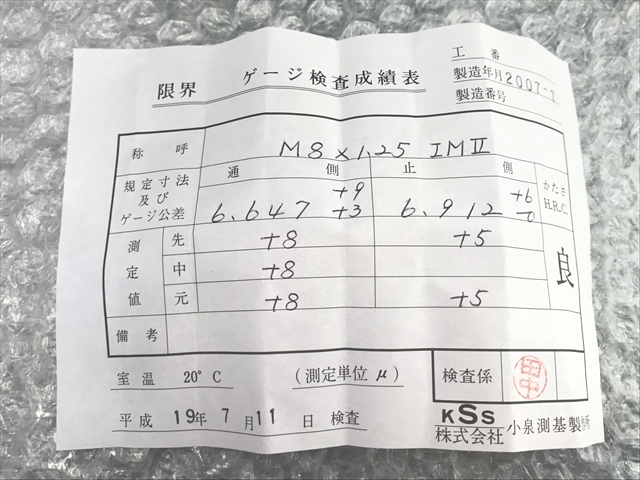 工番
限界 ゲージ検査成績表
製造年月 2007-7
製造番号
称呼 M8×1.25 IMⅡ
通側 止側
規定寸法及びゲージ公差 6.647 +9 +3 6.912 +6 -0
かたさ H.R.C.
測定値
先 +8 +5
中 +8
元 +8 +5
良
備考
室温 20°C (測定単位μ) 検査係
平成 19年 7月 11日 検査
KSS
株式会社 小泉測基製作所